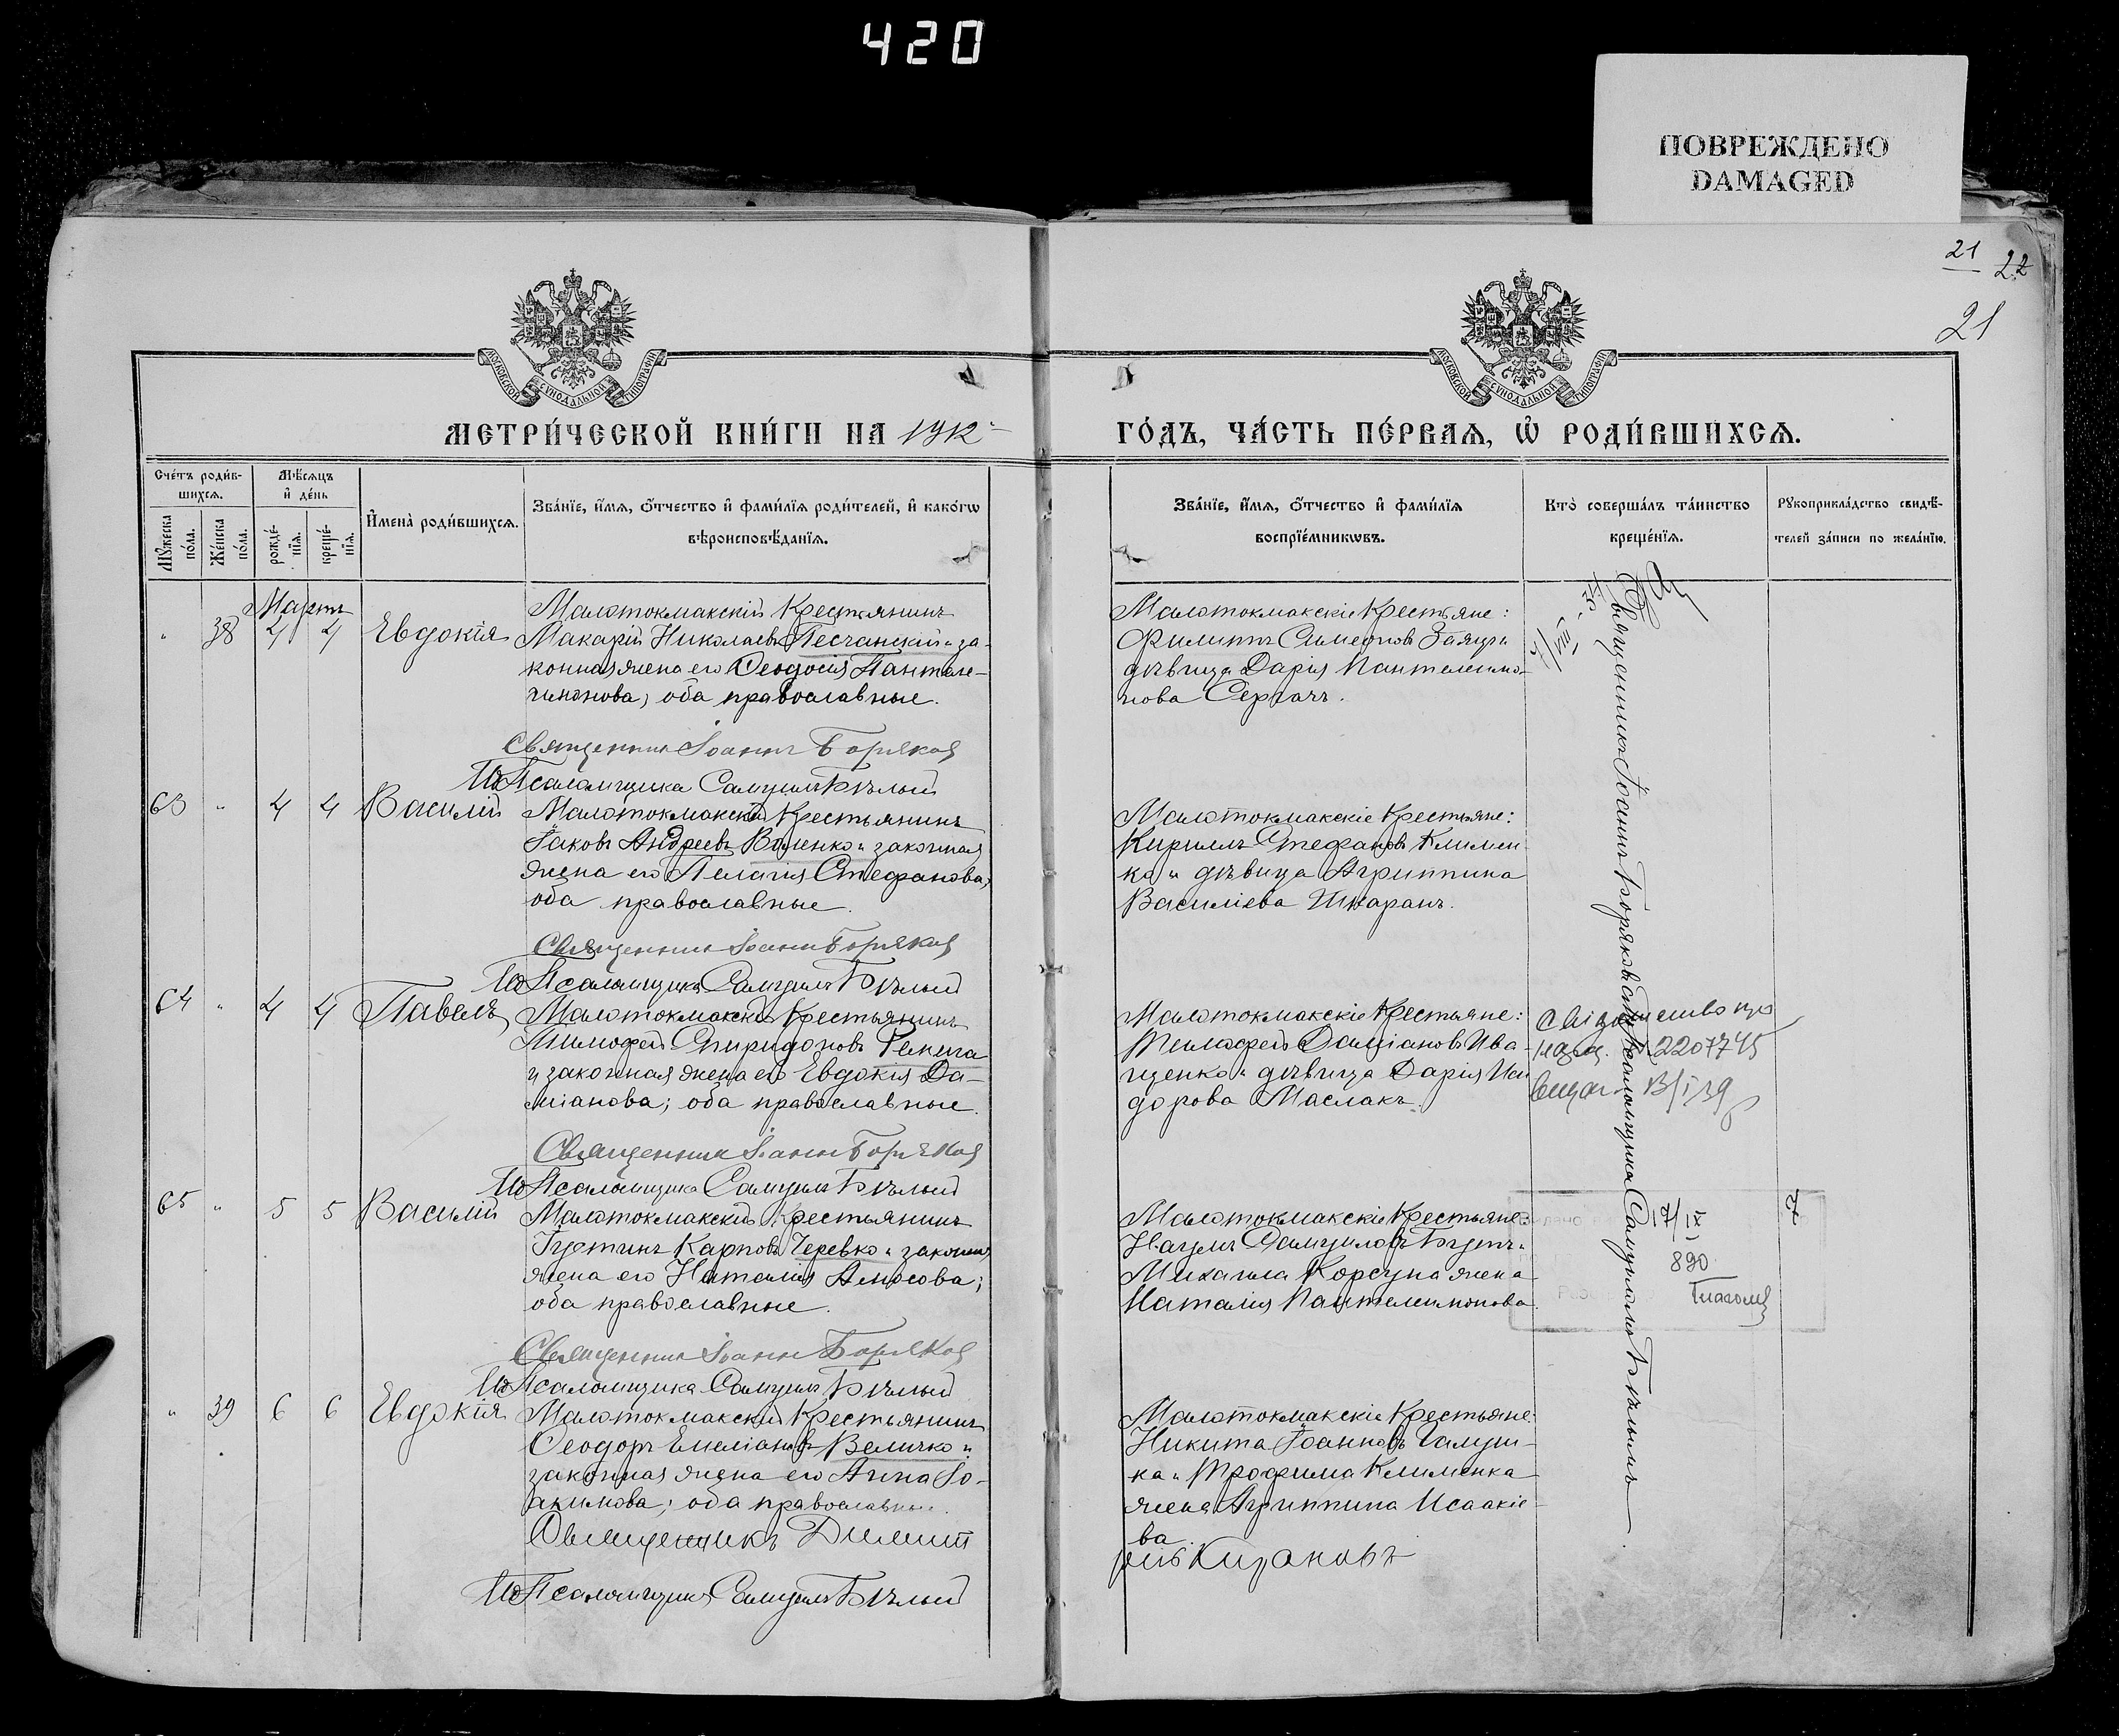 420
ПОВРЕЖДЕНО
DAMAGED
21
22
21
МОСКОВСКОЙ СѴНОДАЛЬНОЙ ТИПОГРАФІИ
МОСКОВСКОЙ СѴНОДАЛЬНОЙ ТИПОГРАФІИ
МЕТРИ́ЧЕСКОЙ КНИ́ГИ НА 1912
ГО́ДЪ, ЧА́СТЬ ПЕ́РВАѦ, Ѡ РОДИ́ВШИХСѦ.
Сче́тъ роди́в-
шихсѧ.
Мꙋ́жеска по́ла.
Же́нска по́ла.
Мѣ́сѧцъ
и҆ де́нь
рожде́-
нїѧ.
креще́-
нїѧ.
И҆мена̀ роди́вшихсѧ.
Зва́нїе, и҆́мѧ, ѻ҆́тчество и҆ фами́лїѧ роди́телей, и҆ како́гѡ
вѣроисповѣ́данїѧ.
Зва́нїе, и҆́мѧ, ѻ҆́тчество и҆ фами́лїѧ
воспрїе́мникѡвъ.
Кто̀ соверша́лъ та́инство
креще́нїѧ.
Рꙋкоприкла́дство свидѣ́-
телей за́писи по жела́нїю.
Мартъ
" 38 4 4 Евдокія
Малотокмакскій Крестьянинъ
Макарій Николаевъ Песчанскій и за-
конная жена его Ѳеодосія Пантеле-
имонова, оба православные.
Священникъ Іоаннъ Боряков
Ид Псаломщика Самуилъ Бѣлый
Малотокмакскіе Крестьяне:
Филиппъ Симеоновъ Заяцъ и
дѣвица Дарія Пантелеимо-
нова Сергачъ.
63 " 4 4 Василій
Малотокмакскій Крестьянинъ
Іаковъ Андреевъ и законная
жена его Пелагія Стефанова,
оба православные.
Священникъ Іоаннъ Боряков
Ид Псаломщика Самуилъ Бѣлый
Малотокмакскіе Крестьяне:
Кириллъ Стефановъ Климен-
ко и дѣвица Агриппина
Василіева Шкаранъ.
64 " 4 4 Павелъ
Малотокмакскій Крестьянинъ
Тимофей Спиридоновъ
и законная жена его Евдокія Да-
міанова; оба православные.
Священникъ Іоаннъ Боряков
Ид Псаломщика Самуилъ Бѣлый
Малотокмакскіе Крестьяне:
Тимофей Даміановъ Ива-
щенко и дѣвица Дарія Иси
дорова Маслакъ.
2207745
13/I 39
65 " 5 5 Василій
Малотокмакскій Крестьянинъ
Іустинъ Карповъ Черевко и законная
жена его Наталія Амосова;
оба православные.
Священникъ Іоаннъ Боряков
Ид Псаломщика Самуилъ Бѣлый
Малотокмакскіе Крестьяне:
Наумъ Самуиловъ и
Михаила Корсуна жена
Наталія Пантелеимонова.
17/IX
890
7
" 39 6 6 Евдокія
Малотокмакскій Крестьянинъ
Ѳеодоръ Емеліановъ Величко и
законная жена его Анна Іо-
акимова; оба православные.
Священникъ Димит
рій Кирановъ
Ид Псаломщика Самуилъ Бѣлый
Малотокмакскіе Крестьяне:
Никита Іоанновъ Галуш-
ка и Трофима Клименка
жена Агриппина Исаакіе-
ва.
Священникъ Іоаннъ Боряковъ Псаломщика Самуилъ Бѣлый